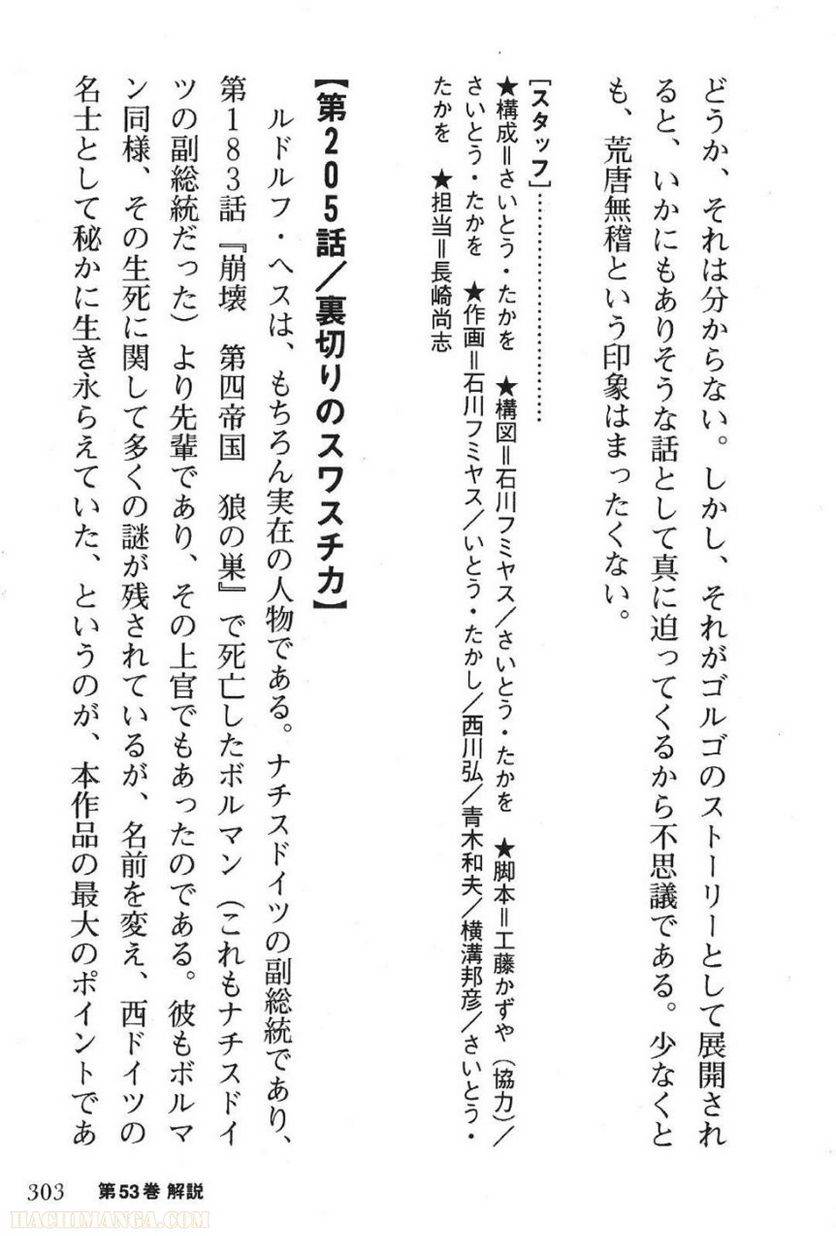 どうか、それは分からない。しかし、それがゴルゴのストーリーとして展開され
ると、いかにもありそうな話として真に迫ってくるから不思議である。少なくと
も、荒唐無稽という印象はまったくない。
[スタッフ]……………………
★構成＝さいとう・たかを ★構図＝石川フミヤス／さいとう・たかを ★脚本＝工藤かずや（協力）／
さいとう・たかを ★作画＝石川フミヤス／いとう・たかし／西川弘／青木和夫／横溝邦彦／さいとう・
たかを ★担当＝長崎尚志
【第205話／裏切りのスワスチカ】
ルドルフ・ヘスは、もちろん実在の人物である。ナチスドイツの副総統であり、
第183話『崩壊 第四帝国 狼の巣』で死亡したボルマン（これもナチスドイ
ツの副総統だった）より先輩であり、その上官でもあったのである。彼もボルマ
ン同様、その生死に関して多くの謎が残されているが、名前を変え、西ドイツの
名士として秘かに生き永らえていた、というのが、本作品の最大のポイントであ
303 第53巻 解説
HACHIMANGA.COM